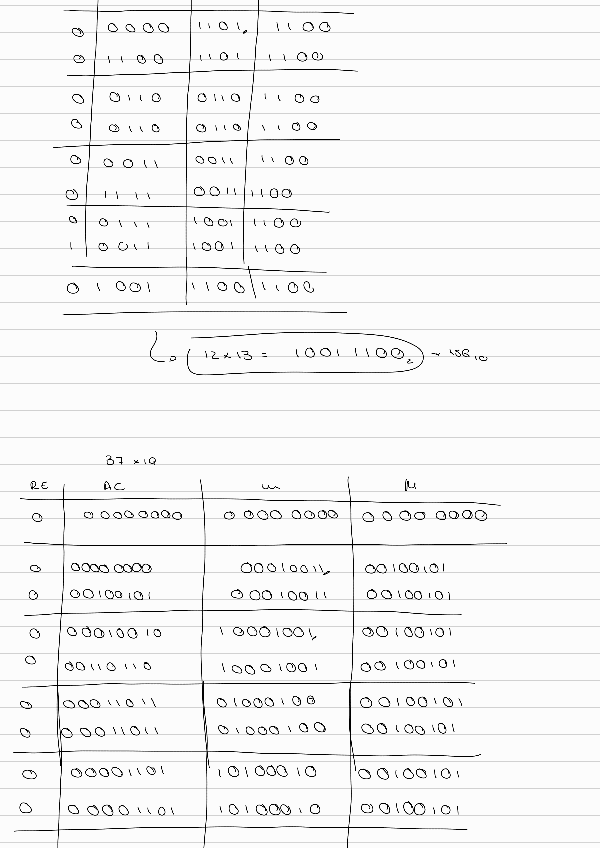 0 0000 1101 1100
0 1100 1101 1100
0 0110 0110 1100
0 0110 0110 1100
0 0011 0011 1100
0 1111 0011 1100
0 0111 1001 1100
1 0011 1001 1100
0 1001 1100 1100
12 x 13 = 1001 1100₂ 156₁₀
37 x 19
RE AC M
0 00000000 0000 0000 0000 0000
0 00000000 00010011 00100101
0 00100101 00010011 00100101
0 00010010 10001001 00100101
0 00110110 10001001 00100101
0 00011011 01000100 00100101
0 00011011 01000100 00100101
0 00001101 10100010 00100101
0 00001101 10100010 00100101